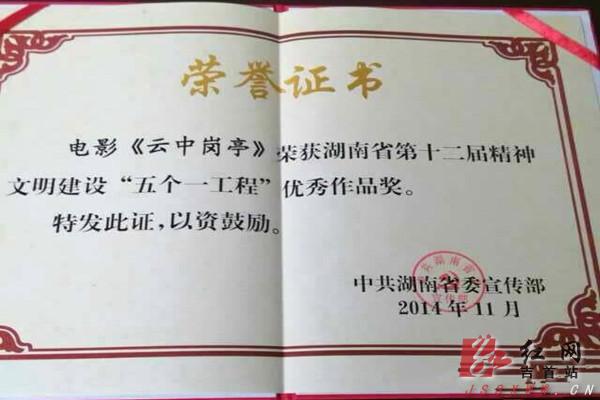 荣誉证书
电影《云中岗亭》荣获湖南省第十二届精神
文明建设“五个一工程”优秀作品奖。
特发此证，以资鼓励。
中共湖南省委宣传部
2014年11月
红网
吉首站